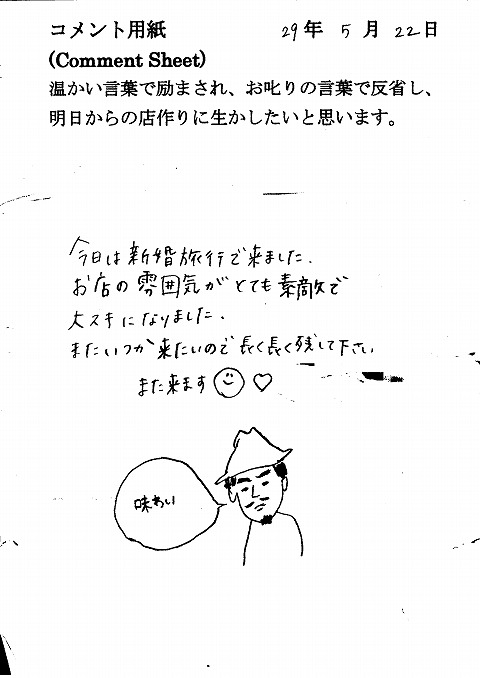 コメント用紙 29年 5月 22日
(Comment Sheet)
温かい言葉で励まされ、お叱りの言葉で反省し、
明日からの店作りに生かしたいと思います。
今日は新婚旅行で来ました.
お店の雰囲気がとても素敵で
大スキになりました.
またいつか来たいので長く長く残して下さい
また来ます
味わい